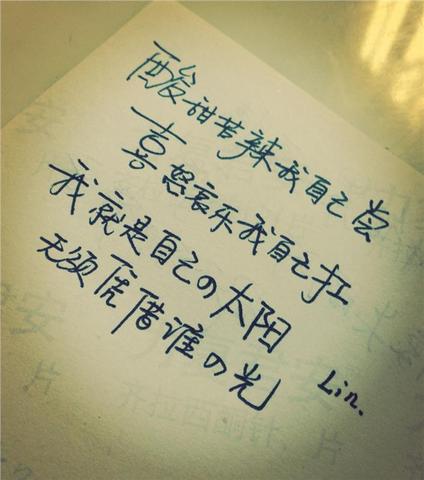 酸甜苦辣我自己尝
喜怒哀乐我自己扛
我就是自己の太阳
无须凭借谁の光
Lin.